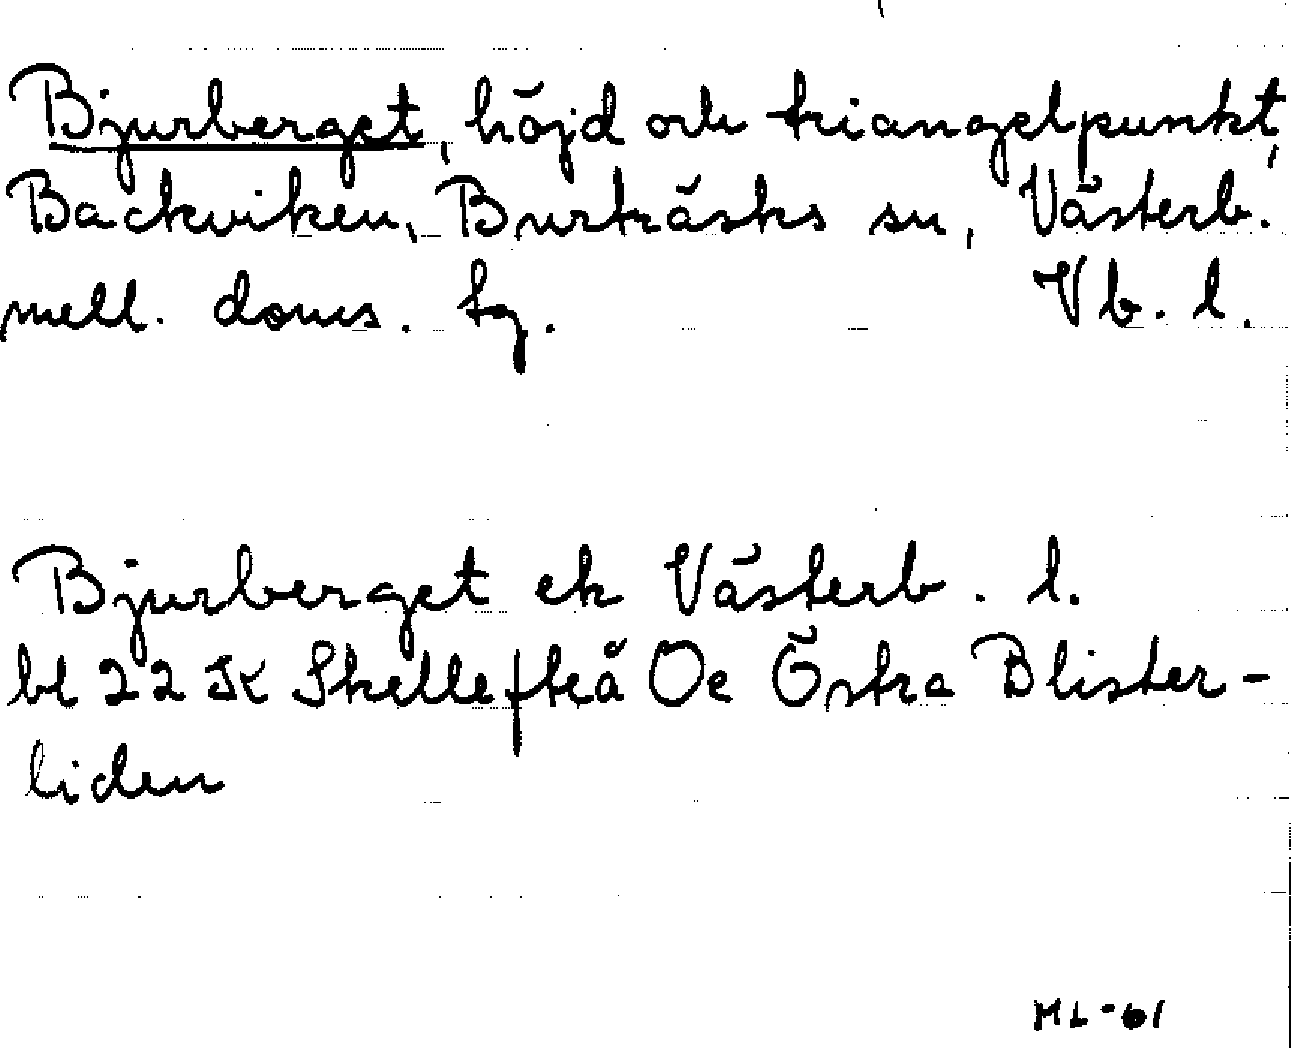 Bjurberget, höjd och triangelpunkt,
Backviken, Burträsks sn, Västerb.
mell. doms. tg. Vb. l.
Bjurberget ek Västerb. l.
bl 22 K Skellefteå Oe Östra Blister-
liden
ML-61